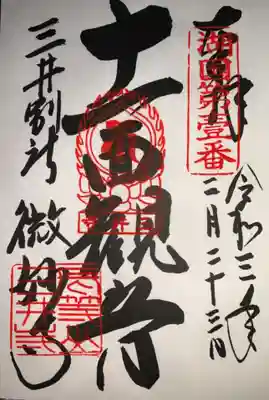 奉拝
湖国第壹番
令和三年
二月二十三日
十一面観音
三井別所
微妙寺